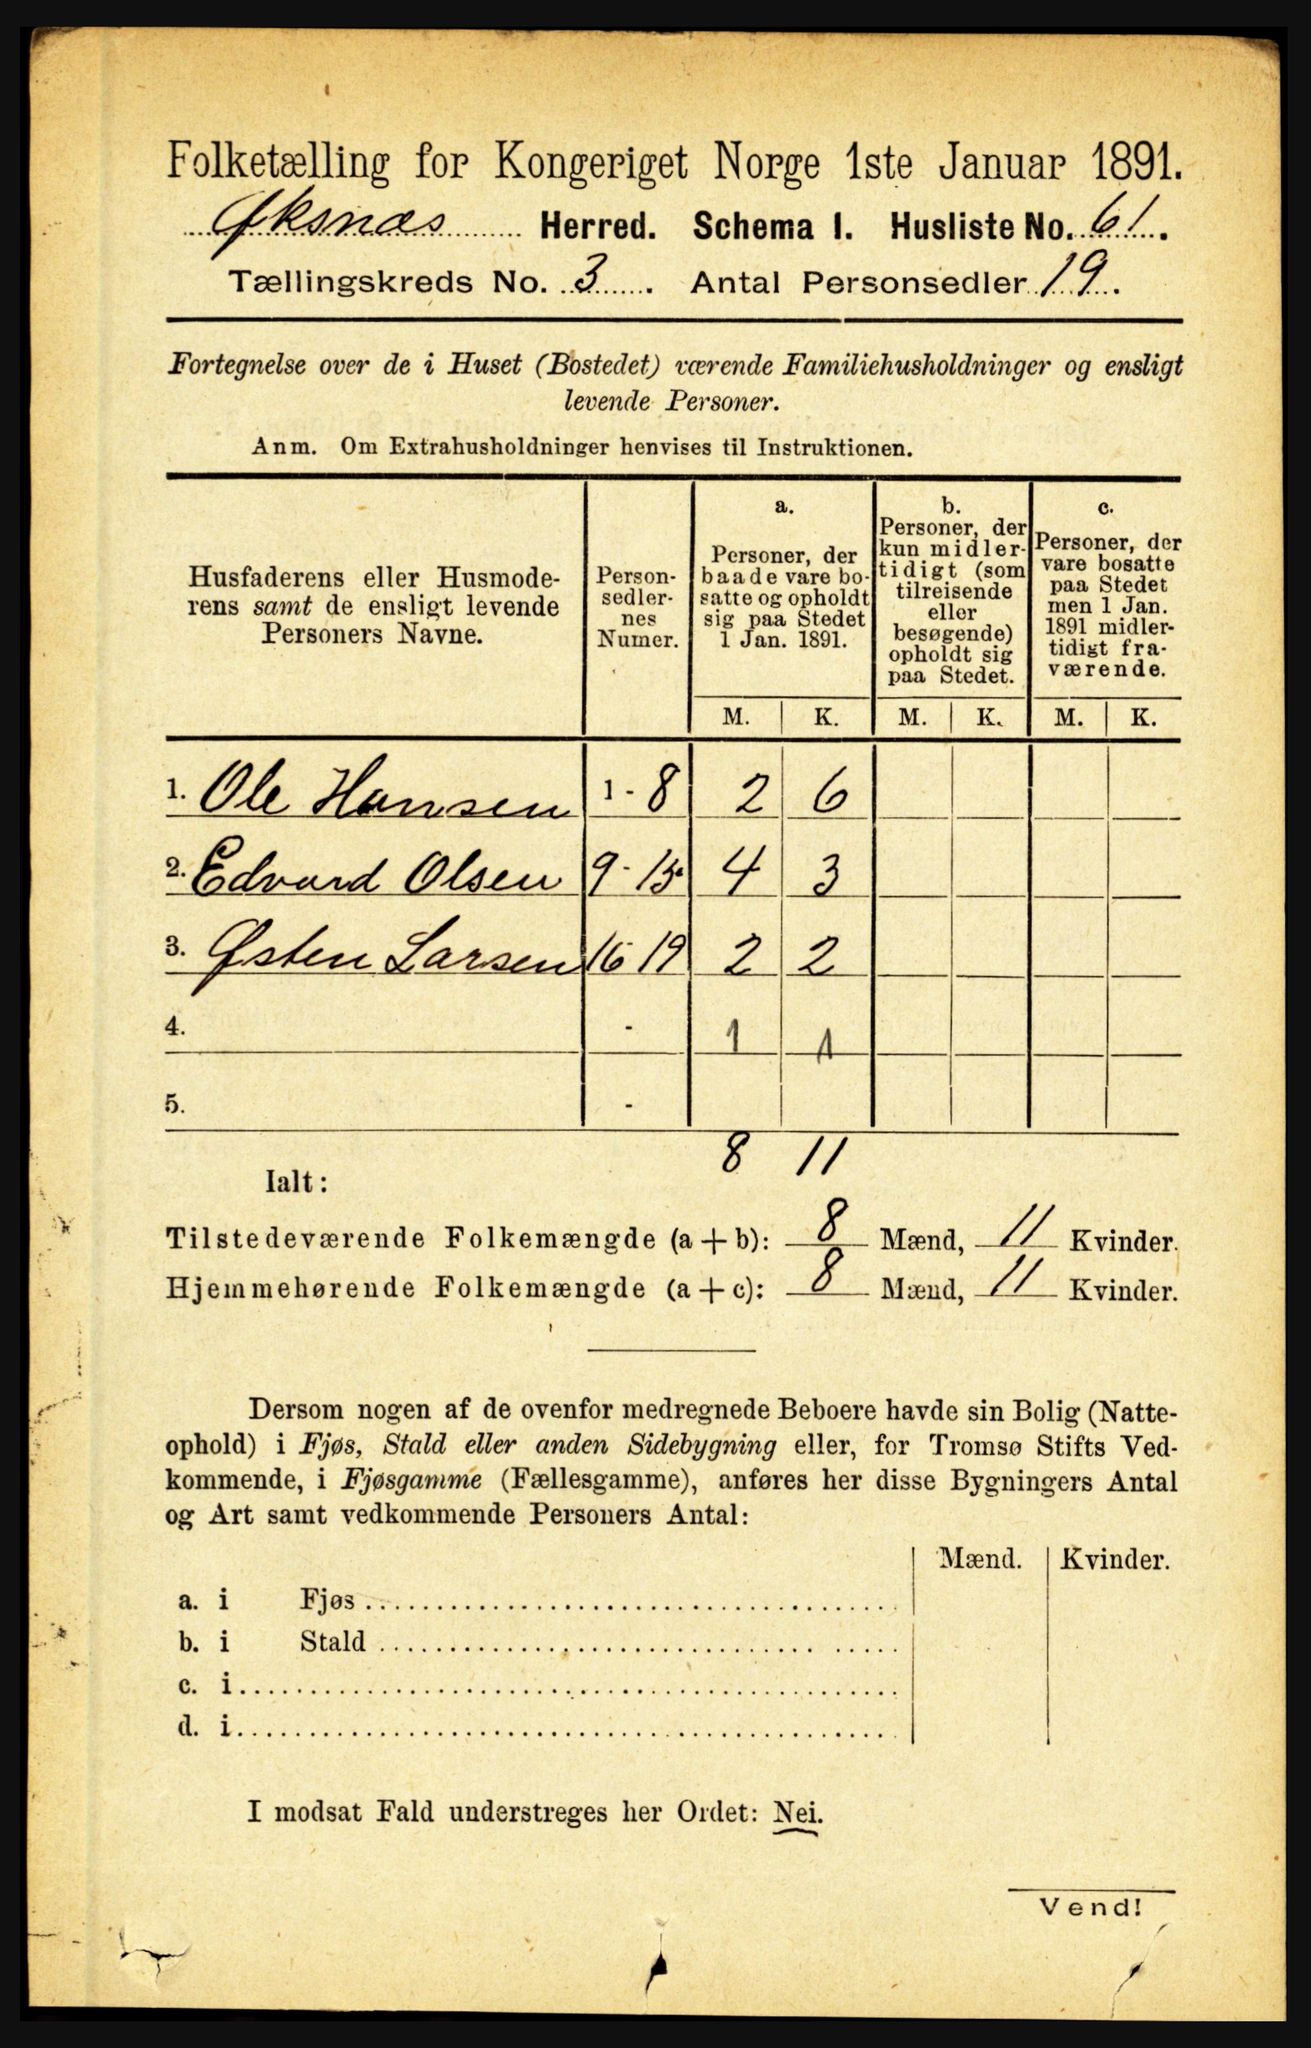 Folketælling for Kongeriget Norge 1ste Januar 1891.
Øksnæs Herred. Schema I. Husliste No. 61.
Tællingskreds No. 3. Antal Personsedler 19.
Fortegnelse over de i Huset (Bostedet) værende Familiehusholdninger og ensligt
levende Personer.
Anm. Om Extrahusholdninger henvises til Instruktionen.
Husfaderens eller Husmode-
rens samt de ensligt levende
Personers Navne.
Person-
sedler-
nes
Numer.
a.
Personer, der
baade vare bo-
satte og opholdt
sig paa Stedet
1 Jan. 1891.
b.
Personer, der
kun midler-
tidigt (som
tilreisende
eller
besøgende)
opholdt sig
paa Stedet.
c.
Personer, der
vare bosatte
paa Stedet
men 1 Jan.
1891 midler-
tidigt fra-
værende.
M. K. M. K. M. K.
1. Ole Hansen 1 - 8 2 6
2. Edvard Olsen 9 - 15 4 3
3. Østen Larsen 16 - 19 2 2
4. - 1 1
5. -
8 11
Ialt:
Tilstedeværende Folkemængde (a + b): 8 Mænd, 11 Kvinder.
Hjemmehørende Folkemængde (a + c): 8 Mænd, 11 Kvinder.
Dersom nogen af de ovenfor medregnede Beboere havde sin Bolig (Natte-
ophold) i Fjøs, Stald eller anden Sidebygning eller, for Tromsø Stifts Ved-
kommende, i Fjøsgamme (Fællesgamme), anføres her disse Bygningers Antal
og Art samt vedkommende Personers Antal:
Mænd. Kvinder.
a. i Fjøs
b. i Stald
c. i
d. i
I modsat Fald understreges her Ordet: Nei.
Vend!